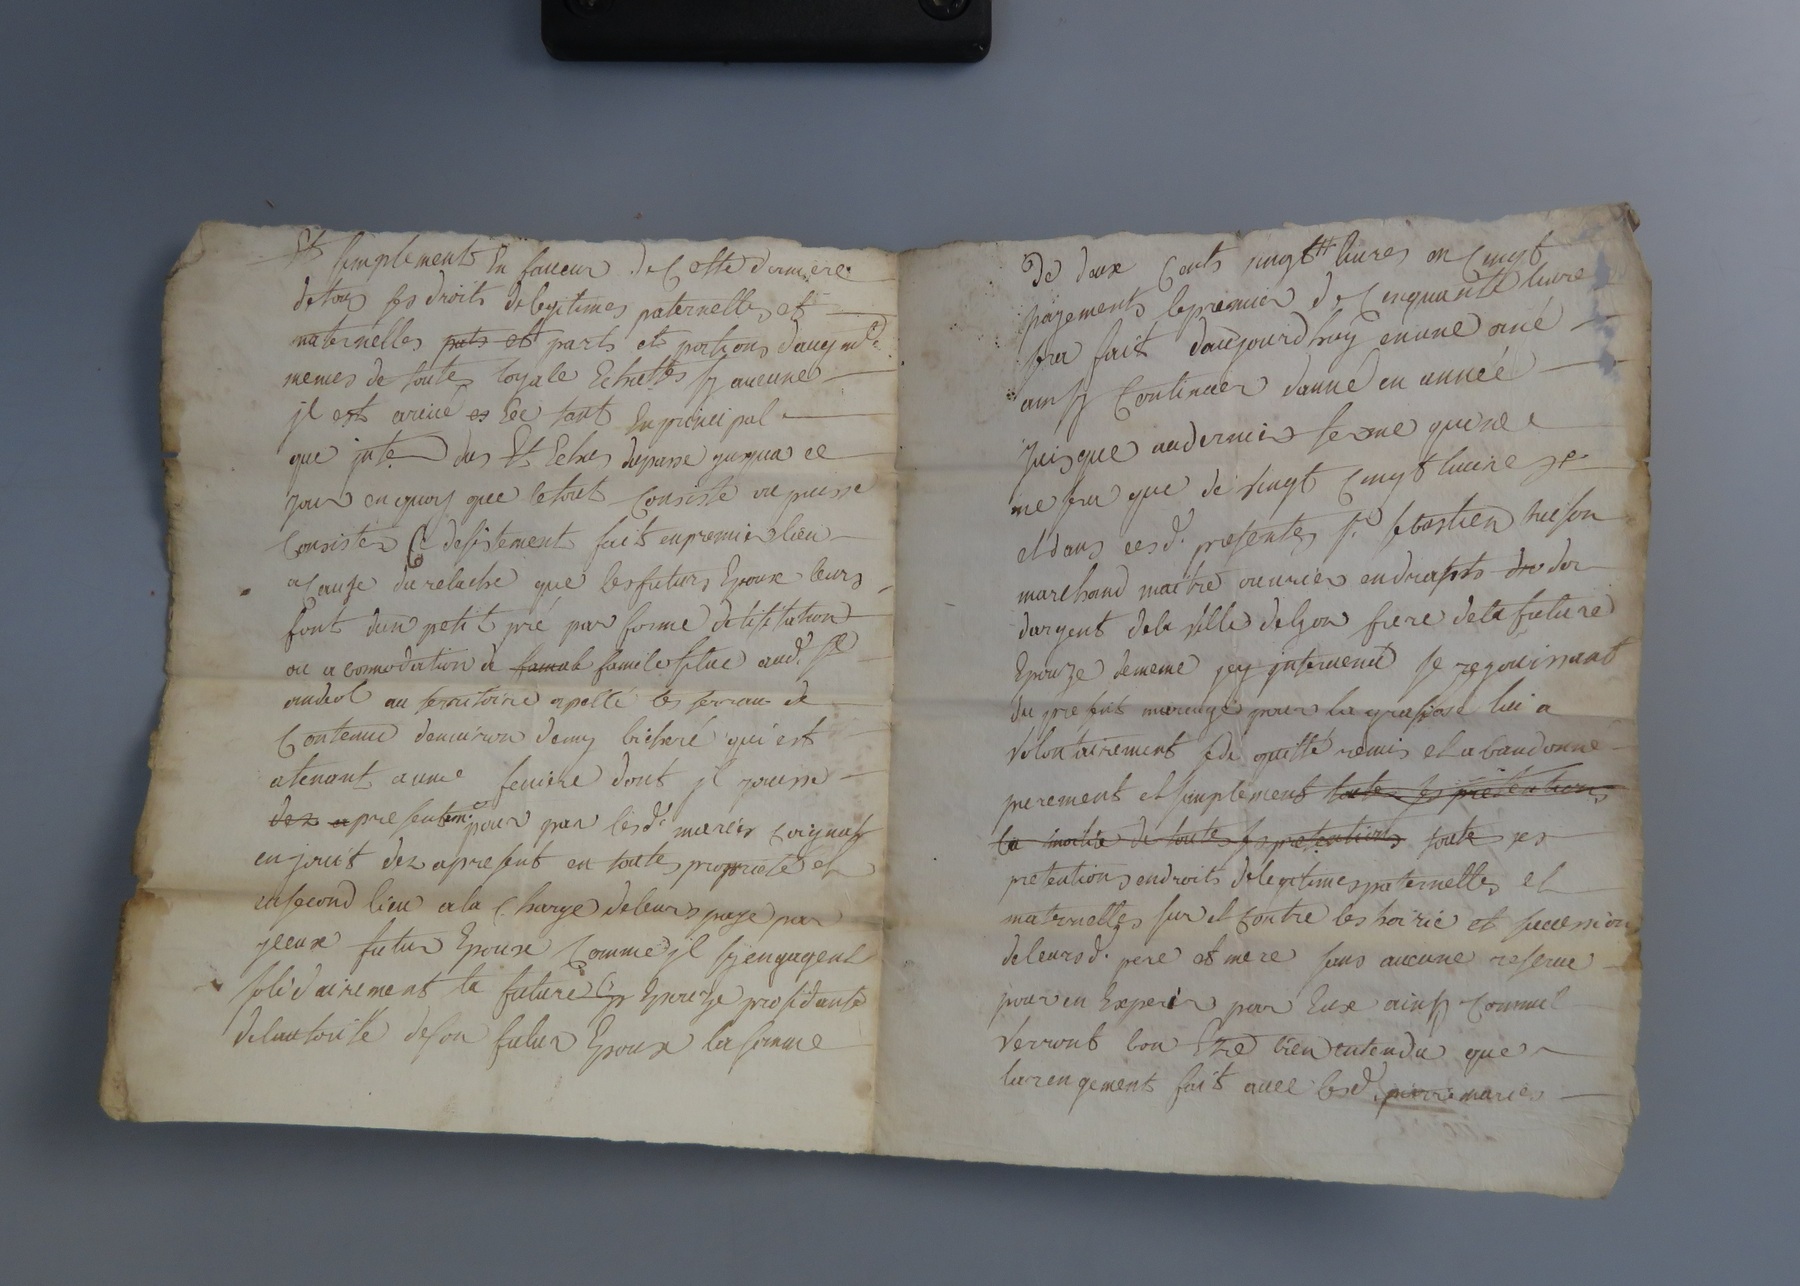 Et simplement En faveur de Cette derniere
de tous ses droits de legitimes paternelles et
maternelles parts et parts et portions d'augmt
memes de toute loyale Echuttes sy aucune
jl est arivé es Eté tant En principal
que inte dus Et Echus du passe jusqua ce
jour en quoy que le tout Consiste ou puisse
Consister Ce desistement fait en premier lieu
a Cause du relache que les futurs Epoux leurs
font d'un petit pré par forme de
ou acommodation de famile situé aud. St
andeol au territoire apellé les terraux de
Contenu denviron demy bicheré qui est
atenant a une dont jl jouisse
dez a presentem. pour par lesd. mariés Coignat
en jouir dez apresent en toute proprieté et
en second lieu a la Charge de leurs paye par
yceux futur Epoux Comme jl sy engagent
solidairement la future Epouze procedante
de lautorité de son futur Epoux la somme
De deux Cents vingt livres en Cinqt
payements le premier de Cinquante livre
sera fait daujourdhuy en une ané
ainsy Continuer danné en année
jusque au dernier terme qui ne
ne sera que de vingt Cinqt livre
et dans cesd. presentes sr. sebastien
marchand maitre ouvrier en drapts dro dor
dargent de la ville de Lyon frere de la future
Epouze de meme jcy intervenu se rejouissant
du pre fait mariage pour la presse lui a
volontairement cede quitté remis et abandonne
purement et simplement toutes ses pretentions
la moitié de toutes ses pretentions toute ses
pretentions en droits de legitimes paternelles et
maternelles sur et Contre les hoirie et sucession
de leursd. pere et mere sans aucune reserve
pour en Exper par Eux ainsy Comme
verront bon Etre bien entendu que
larengement fait avec lesd. mariés